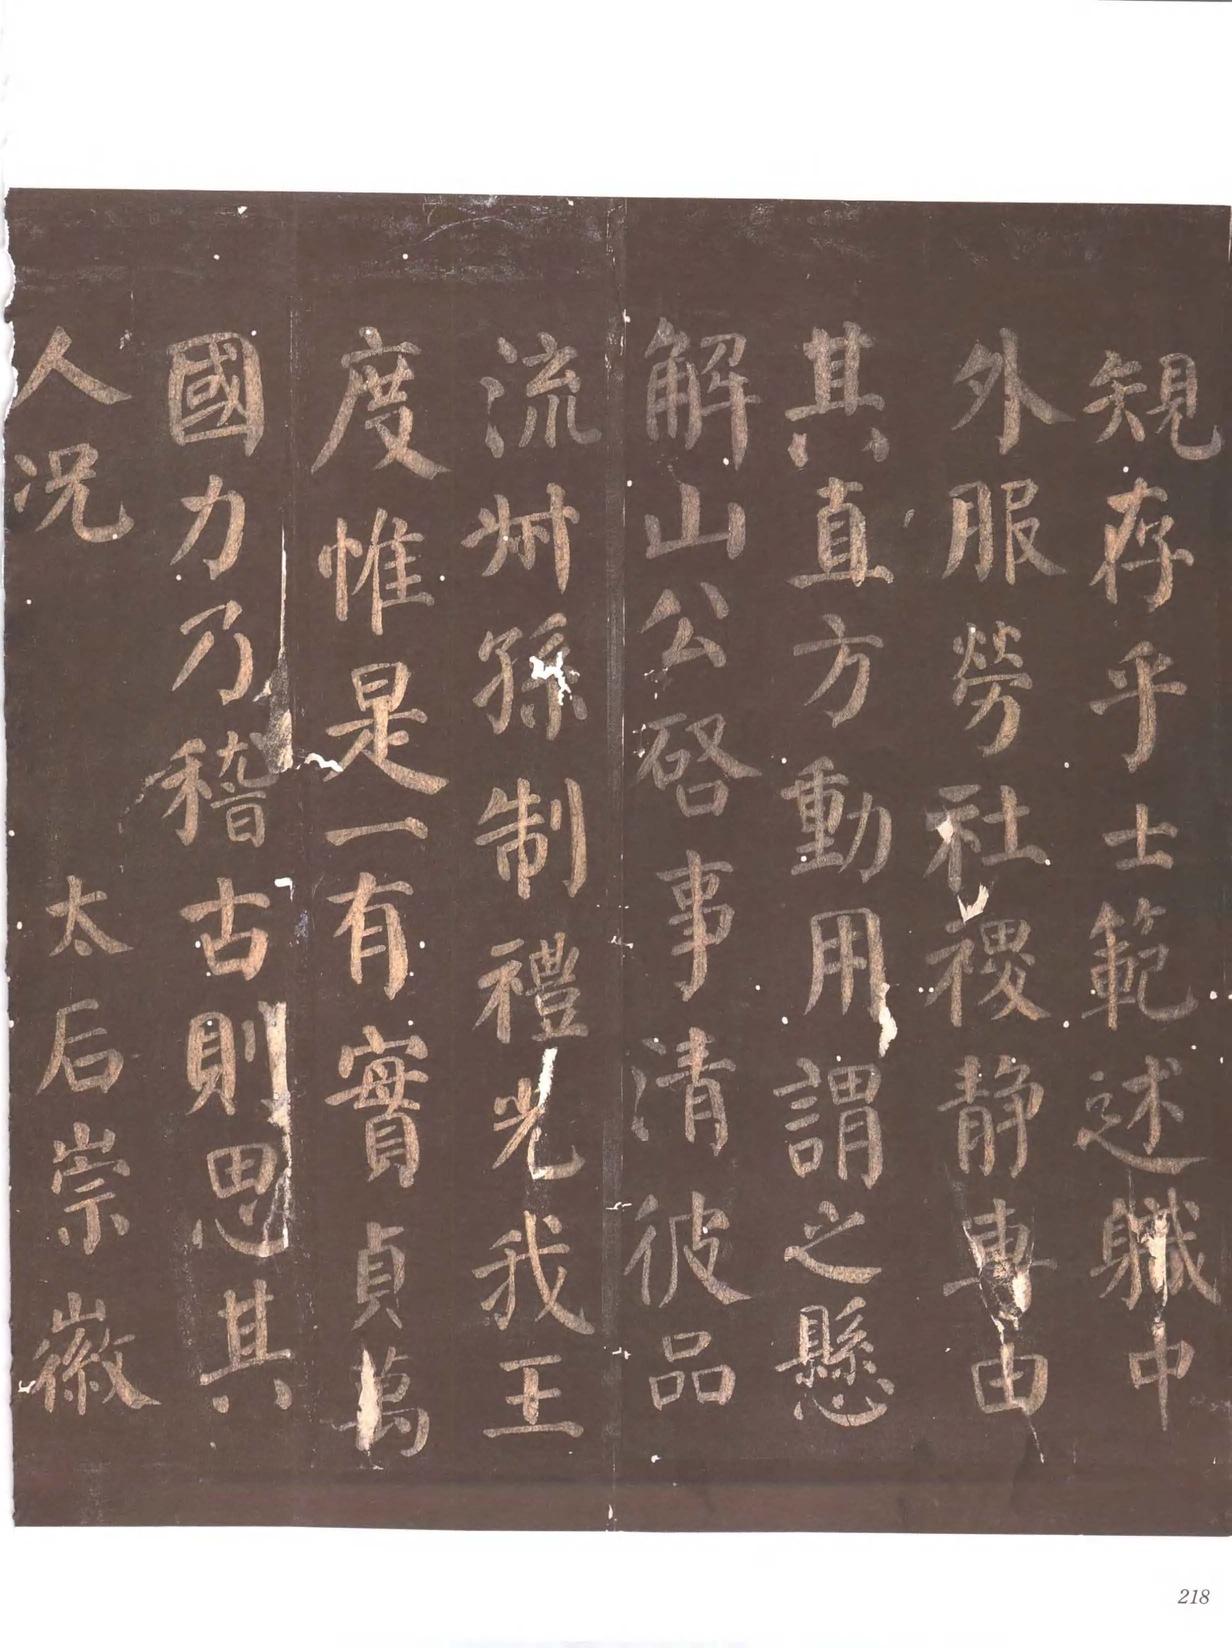 規存乎士範述職中
外服勞社稷静專由
其直方動用謂之懸
解山公啓事清彼品
流叔孫制禮光我王
度惟是一有實貞萬
國力乃稽古則思其
人况太后崇徽
218